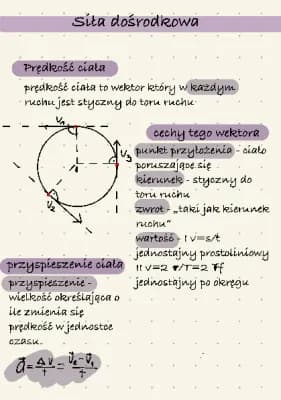 Siła dośrodkowa
Prędkość ciała
prędkość ciała to wektor który w każdym
ruchu jest styczny do toru ruchu
V₁
V₃
V₂
cechy tego wektora
punkt przyłożenia - ciało
poruszające się
kierunek - styczny do
toru ruchu
zwrot - „taki jak kierunek
ruchu"
wartość - I v=s/t
jednostajny prostoliniowy
II v=2 π/T=2 πf
jednostajny po okręgu
przyspieszenie ciała
przyspieszenie -
wielkość określająca o
ile zmienia się
prędkość w jednostce
czasu.
a⃗ = Δv/t = v⃗₂ - v⃗₁/t